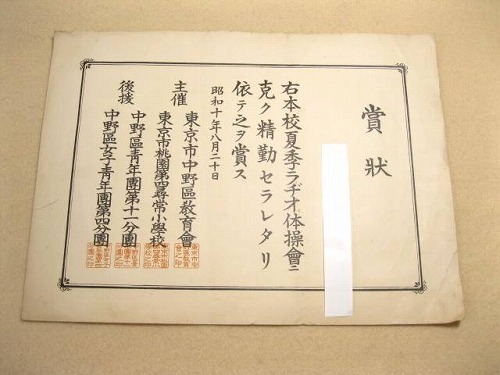 賞狀
右本校夏季ラヂオ体操會ニ
克ク精勤セラレタリ
依テ之ヲ賞ス
昭和十年八月二十日
主催
東京市中野區敎育會
東京市桃園第四尋常小學校
後援
中野區靑年團第十一分團
中野區女子靑年團第四分團